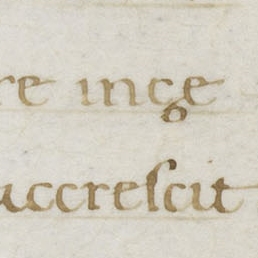 re inge
uccreſcit